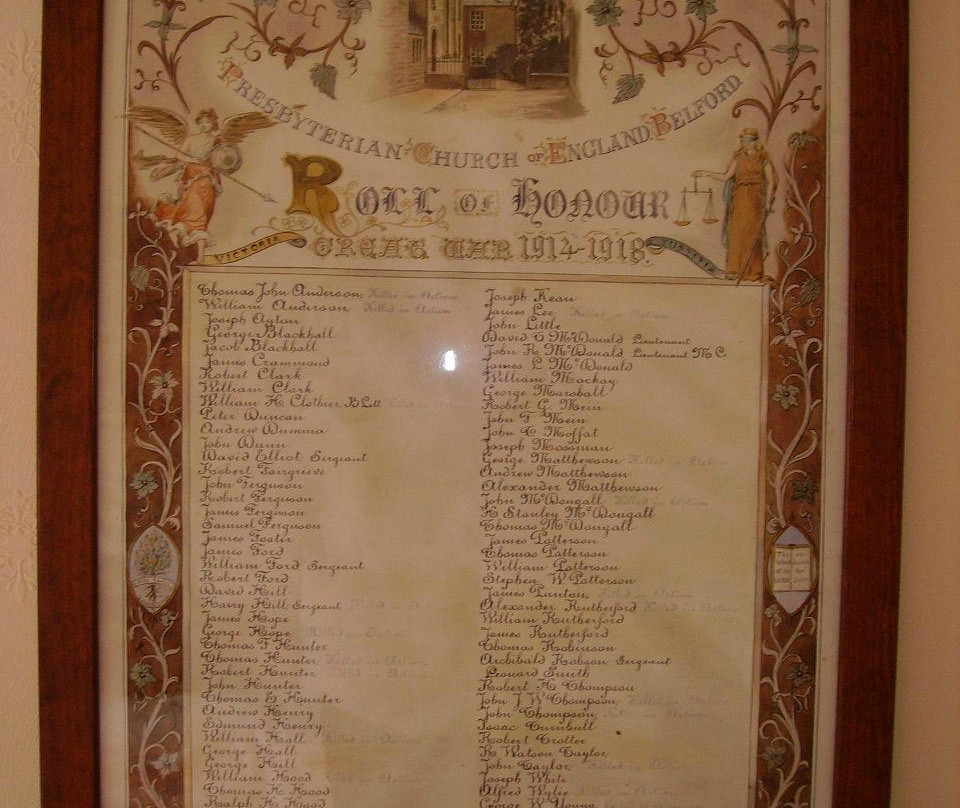 PRESBYTERIAN CHURCH OF ENGLAND BELFORD
ROLL OF HONOUR
VICTORIA
GREAT WAR 1914-1918.
JUSTITIA
Thomas John Anderson Killed in Action
William Anderson Killed in Action
Joseph Ayton
George Blackhall
Jacob Blackhall
James Crammond
Robert Clark
William Clark
William H. Clothier. B Litt
Peter Duncan
Andrew Dumma
John Dunn
David Elliot Sergeant
Robert Fairgrieve
John Ferguson
Robert Ferguson
James Ferguson
Samuel Ferguson
James Foster
James Ford
William Ford Sergeant
Robert Ford
David Hill
Harry Hill Sergeant Killed in Action
James Hope
George Hope Killed in Action
Thomas T Hunter
Thomas Hunter Killed in Action
Robert Hunter Killed in Action
John Hunter
Thomas E Hunter
Andrew Henry
Edmund Henry
William Hall Killed in Action
George Hall
George Hill
William Hood Killed in Action
Thomas H Hood
Ralph H Hood
Joseph Kean
James Lee Killed in Action
John Little
David C McDonald Lieutenant
John R McDonald Lieutenant M C
James L McDonald
William Mackay
George Marshall
Robert G Mein
John T Mein
John C Moffat
Joseph Mossman
George Matthewson Killed in Action
Andrew Matthewson
Alexander Matthewson
John McDougall Killed in Action
H Stanley McDougall
Thomas McDougall
James Patterson
Thomas Patterson
William Patterson
Stephen W Patterson
James Purton Killed in Action
Alexander Rutherford Killed in Action
William Rutherford
James Rutherford
Thomas Robinson
Archibald Robson Sergeant
Leonard Smith
Robert H Thompson
John J W Thompson Killed in Action
John Thompson Killed in Action
Isaac Turnbull
Robert Trotter
R Watson Taylor
John Taylor Killed in Action
Joseph White
Alfred Wylie Killed in Action
George W Young